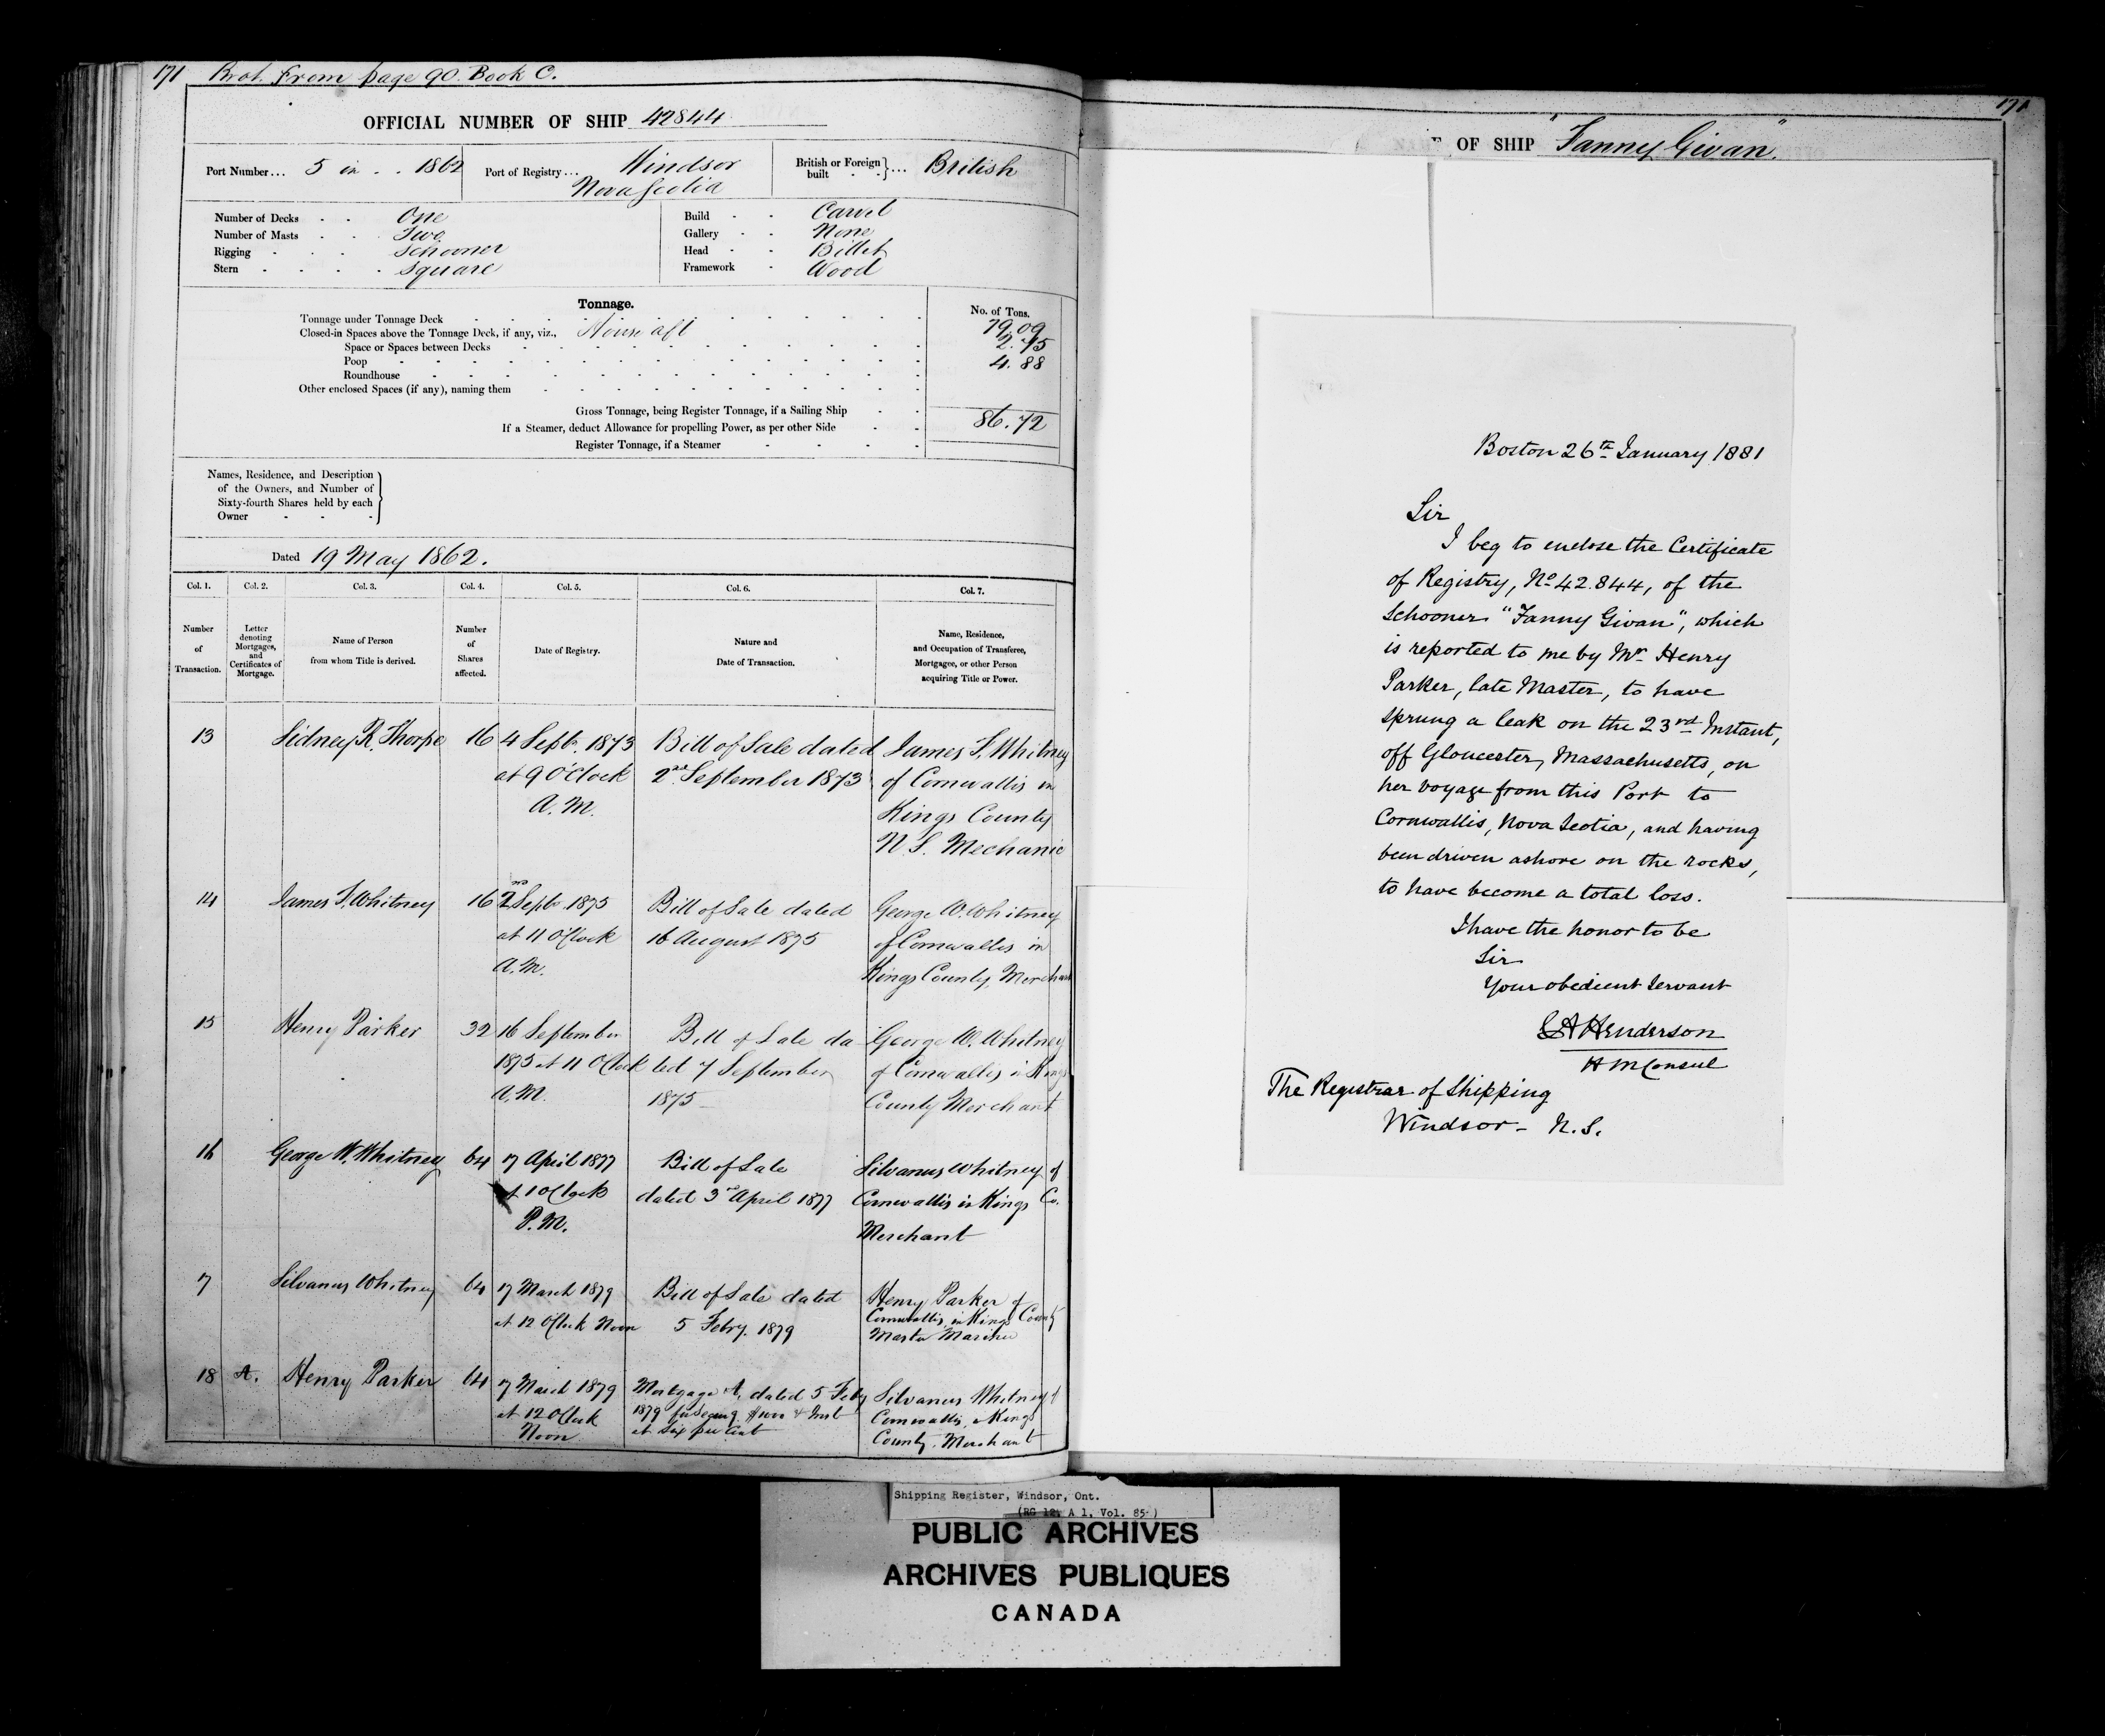 171 Brot. From page 90. Book C.
OFFICIAL NUMBER OF SHIP 42844
Port Number... 5 in . . 1862
Port of Registry... Windsor
Nova Scotia
British or Foreign built } ... British
Number of Decks . . One
Number of Masts . . Two
Rigging . . . Schooner
Stern . . . . Square
Build . . Carvel
Gallery . . None
Head . . Billet
Framework . Wood
Tonnage.
No. of Tons.
Tonnage under Tonnage Deck 79.09
Closed-in Spaces above the Tonnage Deck, if any, viz., House aft 2.75
Space or Spaces between Decks
Poop 4.88
Roundhouse
Other enclosed Spaces (if any), naming them
Gross Tonnage, being Register Tonnage, if a Sailing Ship 86.72
If a Steamer, deduct Allowance for propelling Power, as per other Side
Register Tonnage, if a Steamer
Names, Residence, and Description
of the Owners, and Number of
Sixty-fourth Shares held by each
Owner
Dated 19 May 1862.
Col. 1. Col. 2. Col. 3. Col. 4. Col. 5. Col. 6. Col. 7.
Number of Transaction.
Letter denoting Mortgages, and Certificates of Mortgage.
Name of Person from whom Title is derived.
Number of Shares affected.
Date of Registry.
Nature and Date of Transaction.
Name, Residence, and Occupation of Transferee, Mortgagee, or other Person acquiring Title or Power.
13 Sidney R. Thorpe 16 4 Sept. 1873 Bill of Sale dated James S. Whitney
at 9 O'Clock 2nd September 1873 of Cornwallis in
A.M. Kings County
N.S. Mechanic
14 James S. Whitney 16 2 Sept. 1875 Bill of Sale dated George W. Whitney
at 11 O'Clock 16 August 1875 of Cornwallis in
A.M. Kings County Merchant
15 Henry Parker 32 16 September Bill of Sale da George W. Whitney
1875 at 11 O'Clock ted 7 September of Cornwallis in Kings
A.M. 1875 County Merchant
16 George W. Whitney 64 7 April 1877 Bill of Sale Silvanus Whitney of
at 1 O'Clock dated 3rd April 1877 Cornwallis in Kings Co.
P.M. Merchant
7 Silvanus Whitney 64 7 March 1879 Bill of Sale dated Henry Parker of
at 12 O'Clock Noon 5 Febry. 1879 Cornwallis in Kings County
Master Mariner
18 A. Henry Parker 64 7 March 1879 Mortgage A, dated 5 Feby Silvanus Whitney of
at 12 O'Clock 1879 & Inst Cornwallis in Kings
Noon at Six per Cent County. Merchant
171
OF SHIP "Fanny Givan".
Boston 26th January 1881
Sir
I beg to enclose the Certificate
of Registry, No 42.844, of the
Schooner "Fanny Givan", which
is reported to me by Mr Henry
Parker, late Master, to have
sprung a leak on the 23rd Instant,
off Gloucester, Massachusetts, on
her voyage from this Port to
Cornwallis, Nova Scotia, and having
been driven ashore on the rocks,
to have become a total loss.
I have the honor to be
Sir
Your obedient Servant
Henderson
H M Consul
The Registrar of Shipping
Windsor - N.S.
Shipping Register, Windsor, Ont.
(RG 12, A 1, Vol. 85-)
PUBLIC ARCHIVES
ARCHIVES PUBLIQUES
CANADA